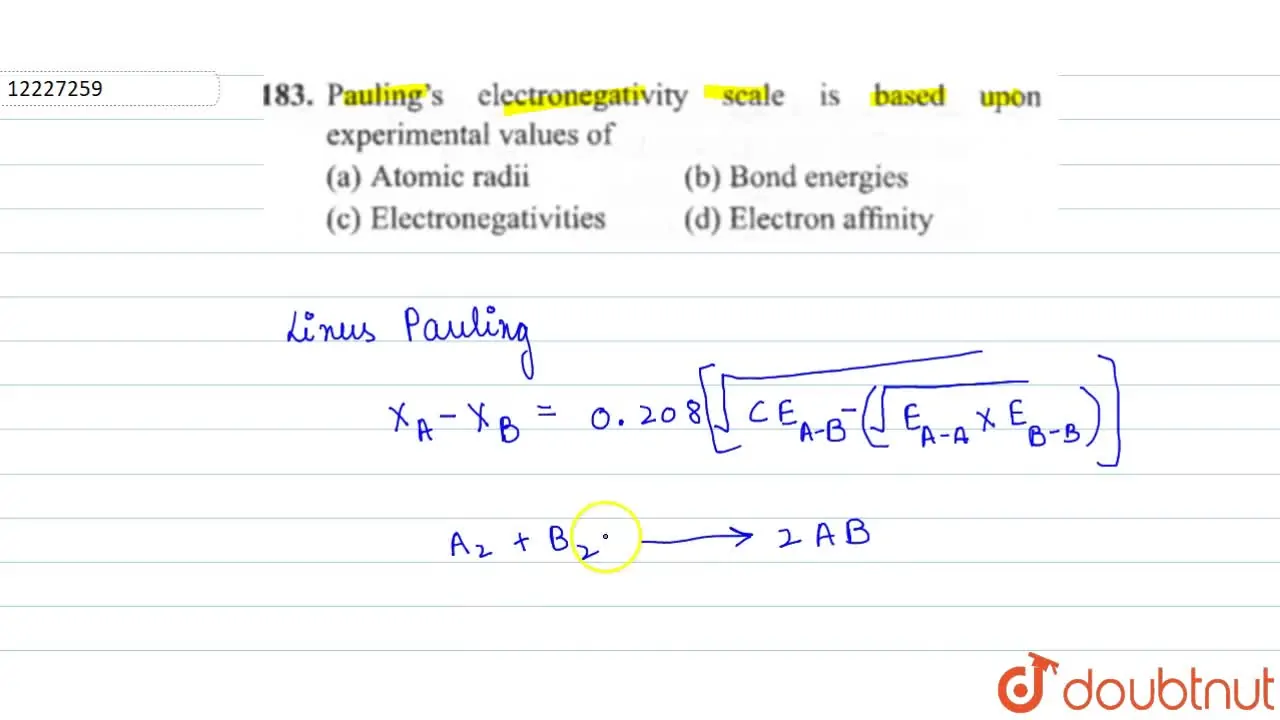 12227259
183. Pauling's electronegativity scale is based upon
experimental values of
(a) Atomic radii (b) Bond energies
(c) Electronegativities (d) Electron affinity
Linus Pauling
X_A - X_B = 0.208 [√CE_A-B - (√E_A-A × E_B-B)]
A₂ + B₂ ⟶ 2AB
doubtnut